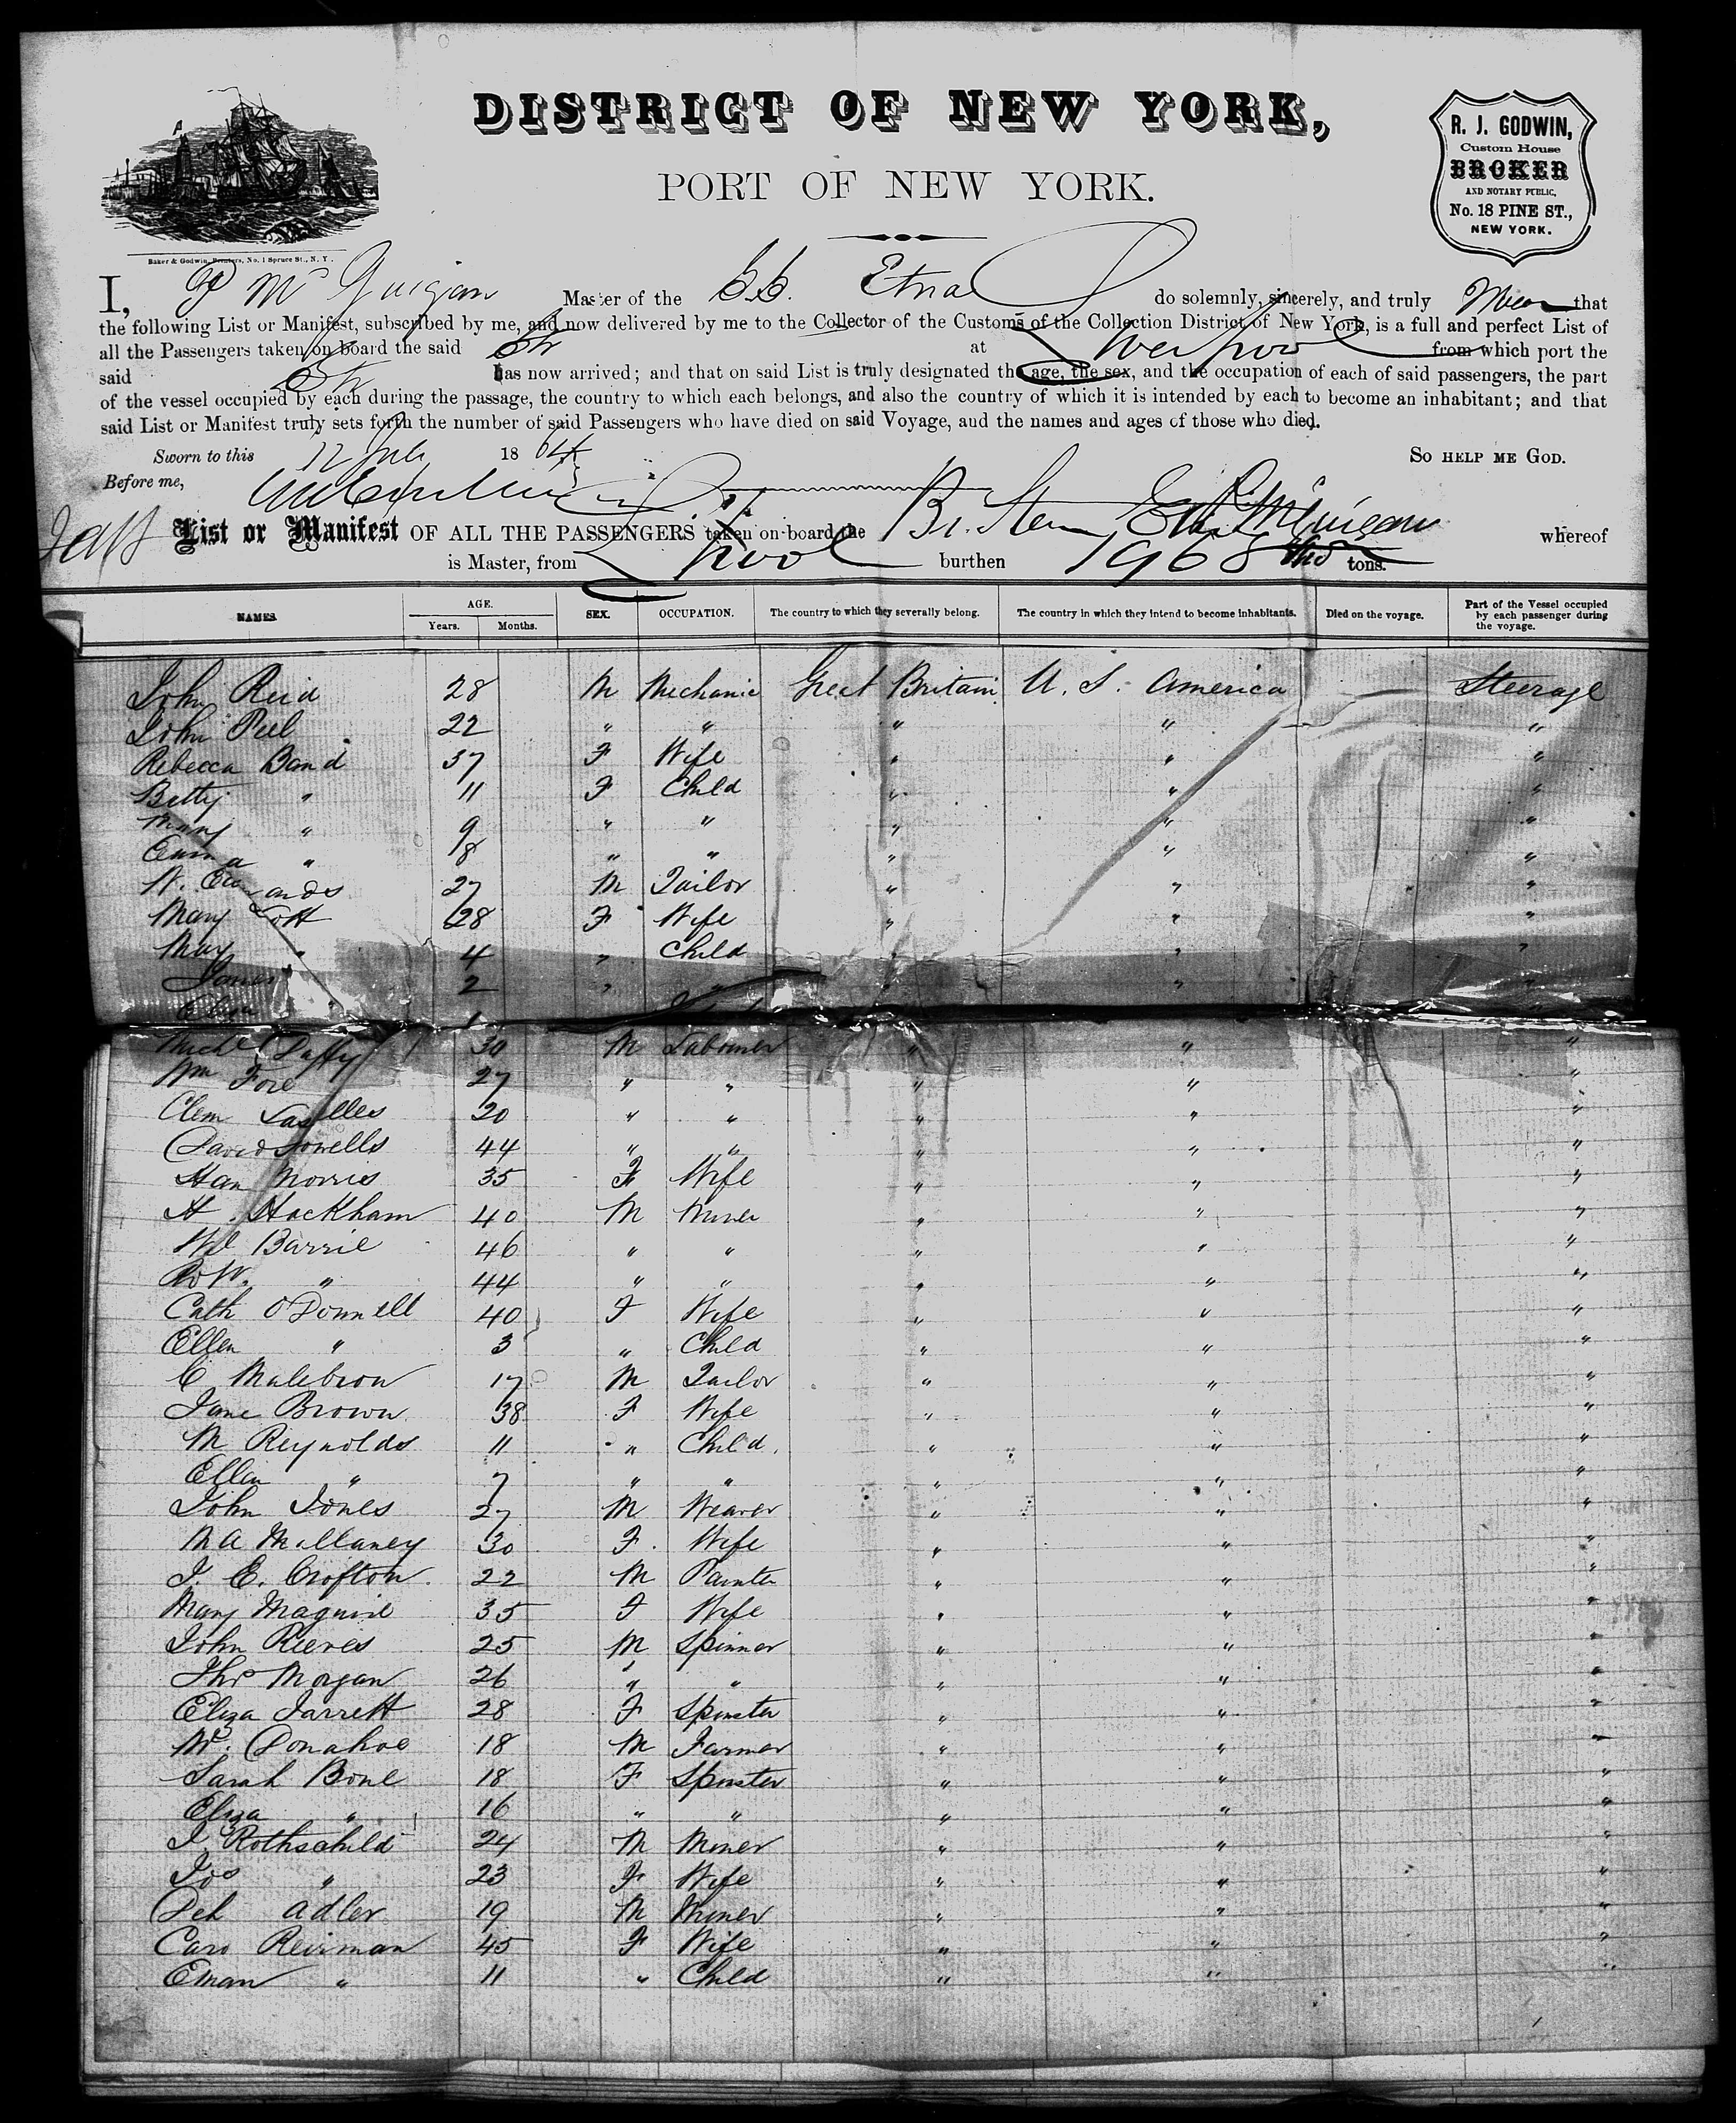 DISTRICT OF NEW YORK,
PORT OF NEW YORK.
R. J. GODWIN,
Custom House
BROKER
AND NOTARY PUBLIC,
No. 18 PINE ST.,
NEW YORK.
Baker & Godwin, Printers, No. 1 Spruce St., N. Y.
I, P McGuigan Master of the S.S. Etna do solemnly, sincerely, and truly swear that
the following List or Manifest, subscribed by me, and now delivered by me to the Collector of the Customs of the Collection District of New York, is a full and perfect List of
all the Passengers taken on board the said Str at Liverpool from which port the
said Str has now arrived; and that on said List is truly designated the age, the sex, and the occupation of each of said passengers, the part
of the vessel occupied by each during the passage, the country to which each belongs, and also the country of which it is intended by each to become an inhabitant; and that
said List or Manifest truly sets forth the number of said Passengers who have died on said Voyage, and the names and ages of those who died.
Sworn to this 12 July 1864 SO HELP ME GOD.
Before me,
List or Manifest OF ALL THE PASSENGERS taken on board the Br. Stem Etna McGuigan whereof
is Master, from L'pool burthen 1968 tons.
NAMES. AGE. Years. Months. SEX. OCCUPATION. The country to which they severally belong. The country in which they intend to become inhabitants. Died on the voyage. Part of the Vessel occupied by each passenger during the voyage.
John Reid 28 M Mechanic Great Britain U. S. America Steerage
John Peel 22 " " " " "
Rebecca Band 37 F Wife " " "
Betty " 11 F Child " " "
Mary " 9 " " " " "
Emma " 8 " " " " "
W. Edwards 27 M Tailor " " "
Mary Lott 28 F Wife " " "
May " 4 " Child " " "
James " 2 " " " " "
Eliza "
Michl Laffy 30 M Labourer " " "
Wm Fore 27 " " " " "
Clem Laselles 20 " " " " "
David Howells 44 " " " " "
Han Morris 35 F Wife " " "
H. Hackham 40 M Miner " " "
Wd Barrie 46 " " " " "
Ro W. " 44 " " " " "
Cath O'Donnell 40 F Wife " " "
Ellen " 3 " Child " " "
C Malebron 17 M Tailor " " "
Jane Brown 38 F Wife " " "
M Reynolds 11 " Child " " "
Ellen " 7 " " " " "
John Jones 27 M Weaver " " "
M A Mullaney 30 F. Wife " " "
J. E. Crofton 22 M Painter " " "
Mary Maguire 35 F Wife " " "
John Reeves 25 M Spinner " " "
Thos Morgan 26 " " " " "
Eliza Jarrett 28 F Spinster " " "
Mc. Donahoe 18 M Farmer " " "
Sarah Bone 18 F Spinster " " "
Eliza " 16 " " " " "
J Rothschild 24 M Miner " " "
Jos " 23 F Wife " " "
Peh Adler 19 M Miner " " "
Caro Reirman 45 F Wife " " "
Eman " 11 " Child " " "